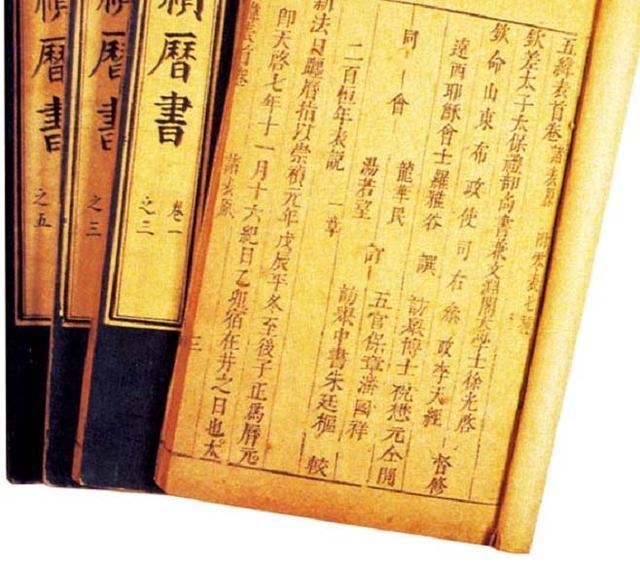 五緯表首卷 諸表原
欽差太子太保禮部尚書兼文淵閣大學士徐光啓
欽命山東布政使司右參政李天經 督修
遠西耶穌會士羅雅谷 譔 訪舉博士祝懋元仝閱
同會 龍華民
湯若望 訂 五官保章潘國祥
訪舉中書朱廷樞 較
二百恒年表說 一章
新法日躔曆指以崇禎元年戊辰年冬至後子正爲曆元
即天啓七年十一月十六紀日乙宿在井之日也太
首卷 諸表原 三
禎曆書
卷一
之二
禎曆書
之三
禎曆書
之五